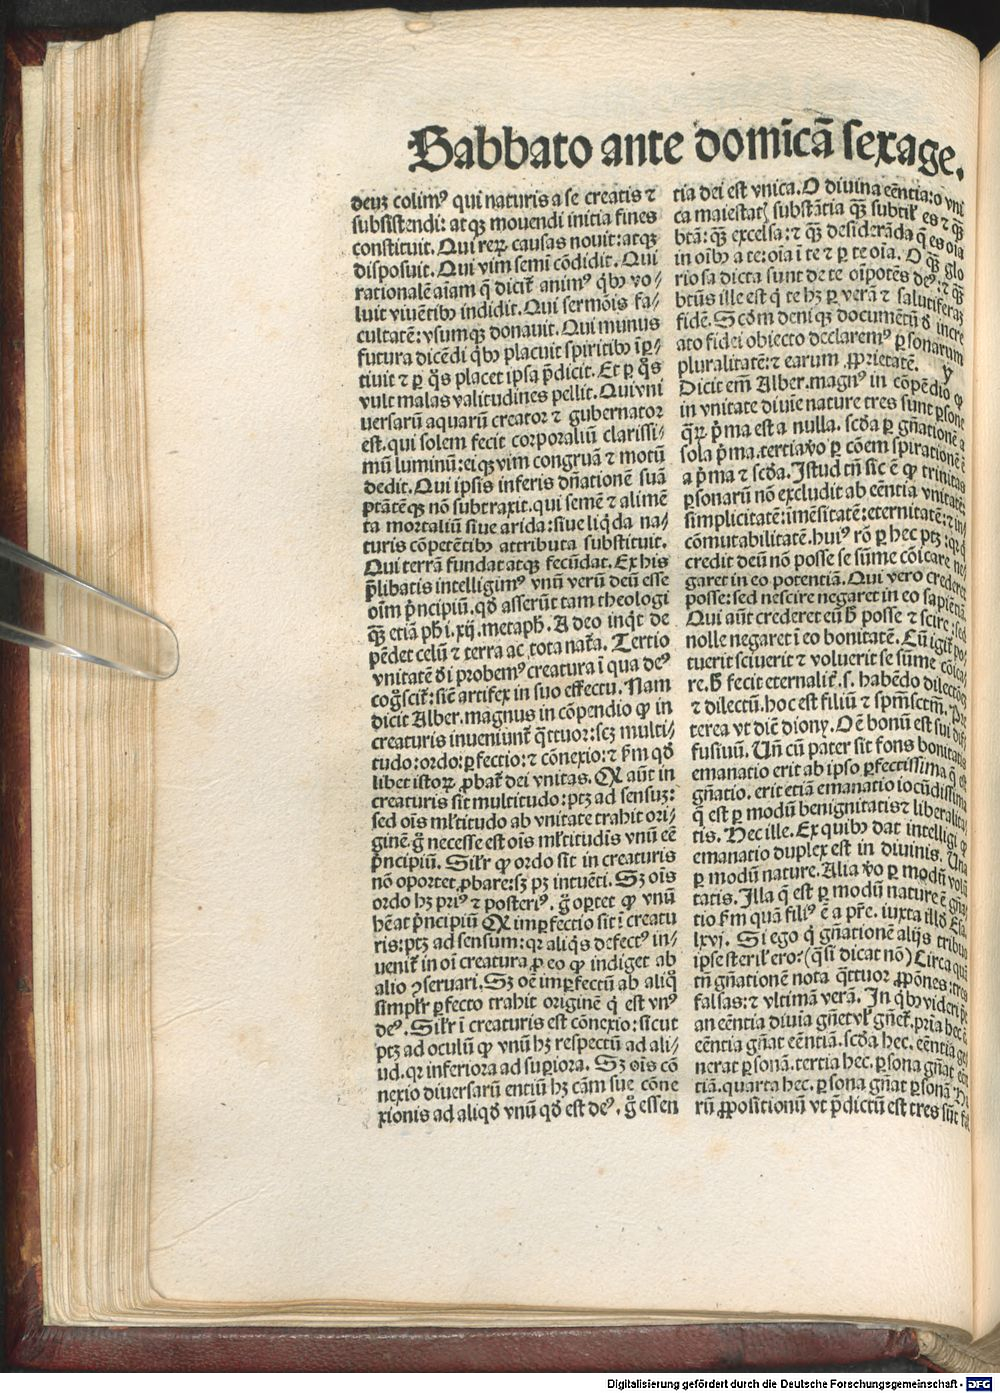 Sabbato ante domīcā sexage.
deuz colimꝰ qui naturis a se creatis ⁊
subsistendi: atqꝫ mouendi initia fines
constituit. Qui reꝝ causas nouit: atqꝫ
disposuit. Qui vim semī cōdidit. Qui
rationalē aīam q̄ dicit̄ animꝰ qͥbꝰ vo-
luit viuētibꝰ indidit. Qui sermōis fa-
cultatē: vsumqꝫ donauit. Qui munus
futura dicēdi qͥbꝰ placuit spiritibꝰ īꝑ-
tiuit ⁊ ꝑ q̄s placet ipsa p̄dicit. Et ꝑ q̄s
vult malas valitudines pellit. Qui vni
uersarū aquarū creator ⁊ gubernator
est. qui solem fecit corporaliū clarissi-
mū luminū: eiqꝫ vim congruā ⁊ motū
dedit. Qui ipsis inferis dn̄ationē suā
ptātēqꝫ nō subtraxit. qui semē ⁊ alimē
ta mortaliū siue arida: siue liqͥda na-
turis cōpetētibꝰ attributa substituit.
Qui terrā fundat atqꝫ fecūdat. Ex his
p̄libatis intelligimꝰ vnū verū deū esse
oīm pͥncipiū. qd̄ asserūt tam theologi
qꝫ̄ etiā ph̄i. xij. metaph̄. A deo inqͥt de
pēdet celū ⁊ terra ac tota nat̄a. Tertio
vnitatē d̄i probemꝰ creatura ī qua deꝰ
coḡscit̄: sic̄ artifex in suo effectu. Nam
dicit Alber. magnus in cōpendio ꝙ in
creaturis inueniunt̄ q̄ttuor: scꝫ multi-
tudo: ordo: ꝑfectio: ⁊ cōnexio: ⁊ ẜm qd̄
libet istoꝝ ꝓbat̄ dei vnitas. Qꝛ aūt in
creaturis sit multitudo: ptꝫ ad sensuꝫ:
sed oīs ml̄titudo ab vnitate trahit ori-
ginē. g̊ necesse est oīs ml̄titudīs vnū eē
pͥncipiū. Sil̄r ꝙ ordo sit in creaturis
nō oportet ꝓbare: sꝫ pꝫ intuēti. Sꝫ oīs
ordo hꝫ priꝰ ⁊ posteriꝰ. g̊ oꝑtet ꝙ vnū
hēat pͥncipiū Qꝛ imꝑfectio sit ī creatu
ris: ptꝫ ad sensum: qꝛ aliqͥs defectꝰ in-
uenit̄ in oī creatura ꝓ eo ꝙ indiget ab
alio ꝯseruari. Sꝫ oē imꝑfectū ab aliq̊
simpl̄r ꝑfecto trahit originē qͥ est vnꝰ
deꝰ. Sil̄r ī creaturis est cōnexio: sicut
ptꝫ ad oculū ꝙ vnū hꝫ respectū ad ali-
ud. qꝛ inferiora ad suꝑiora. Sꝫ oīs cō
nexio diuersarū entiū hꝫ cām sue cōne
xionis ad aliqd̄ vnū qd̄ est deꝰ. g̊ essen
tia dei est vnica. O diuina eēntia: o vni
ca maiestatꝭ substātia qꝫ̄ subtil̄ es ⁊ qꝫ̄
btā: qꝫ̄ excelsa: ⁊ qꝫ̄ desiderāda q̄ es oīa
in oībꝰ a te: oīa ī te ⁊ ꝑ te oīa. O qꝫ̄ glo
riosa dicta sunt de te oīpotēs deꝰ: ⁊ qꝫ̄
btūs ille est qͥ te hꝫ ꝑ verā ⁊ salutiferaꝫ
fidē. Scd̄m deniqꝫ documētū d̄ incre
ato fidei obiecto declaremꝰ ꝑsonarum
pluralitatē: ⁊ earum ꝓprietatē. y
Dicit em̄ Alber. magnꝰ in cōpēdio ꝙ
in vnitate diuīe nature tres sunt ꝑsone
q̄ꝝ pͥma est a nulla. scd̄a ꝑ gn̄ationē a
sola pͥma. tertia v̊o ꝑ cōem spirationē ē
a pͥma ⁊ scd̄a. Istud tn̄ sic ē ꝙ trinitas
ꝑsonarū nō excludit ab eēntia vnitatē:
simplicitatē: īmēsitatē: eternitatē: ⁊ in-
cōmutabilitatē. huiꝰ rō ꝑ hec ptꝫ: qꝛ qͥ
credit deū nō posse se sūme cōicare ne-
garet in eo potentiā. Qui vero crederet
posse: sed nescire negaret in eo sapiētiā
Qui aūt crederet eū h̄ posse ⁊ scire: sed
nolle negaret ī eo bonitatē. Cū igit̄ po-
tuerit sciuerit ⁊ voluerit se sūme cōica-
re. h̄ fecit eternalit̄. s. habēdo dilectōeꝫ
⁊ dilectū. hoc est filiū ⁊ spm̄sctm̄. Pre
terea vt dic̄ diony. Oē bonū est sui dif-
fusiuū. Un̄ cū pater sit fons bonitatis
emanatio erit ab ipso ꝑfectissima q̄ est
gn̄atio. erit etiā emanatio iocūdissima
q̄ est ꝑ modū benignitatis ⁊ liberalita-
tis. Hec ille. Ex quibꝰ dat intelligi ꝙ
emanatio duplex est in diuinis. Una
ꝑ modū nature. Alia v̊o ꝑ modū volū
tatis. Illa q̄ est ꝑ modū nature ē gn̄a-
tio ẜm quā filiꝰ ē a pr̄e. iuxta illd̄ Esa.
lxvj. Si ego qͥ gn̄ationē alijs tribuo
ipse steril̄ ero? (q̄si dicat nō) Circa quā
tn̄ gn̄ationē nota q̄ttuor ꝓpōnes: tres
falsas: ⁊ vltimā verā. In qͥbꝰ videri pt̄
an eēntia diuīa gn̄et vl̄ gn̄et̄. pria hec ē.
eēntia gn̄at eēntiā. scd̄a hec. eēntia ge
nerat ꝑsonā. tertia hec. ꝑsona gn̄at eēn
tiā. quarta hec. ꝑsona gn̄at ꝑsonā. Ha
rū ꝓpositionū vt p̄dictū est tres sūt fal
Digitalisierung gefördert durch die Deutsche Forschungsgemeinschaft - DFG